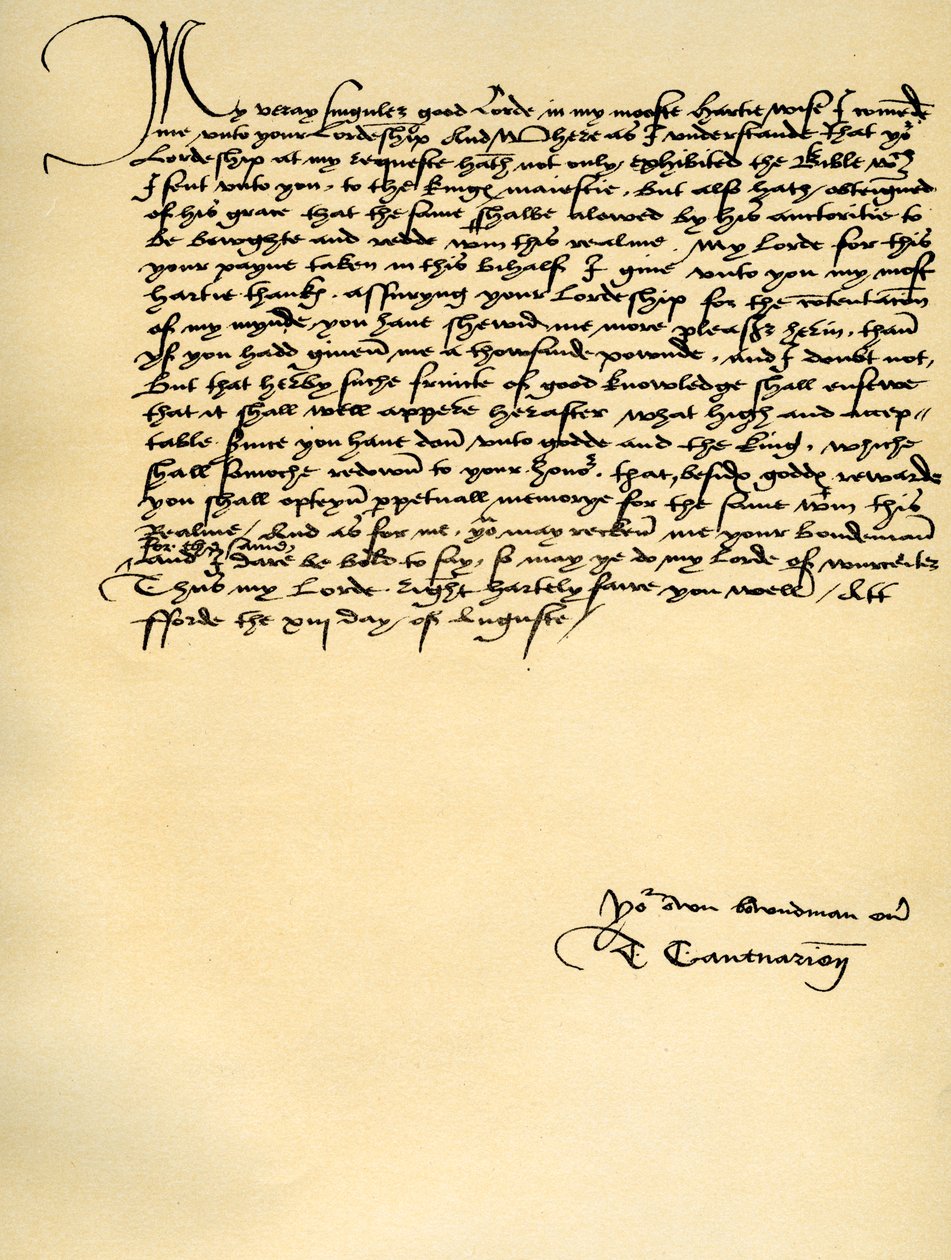 My veray singuler good Lorde in my moeste hartie wise I comende
me vnto your Lordeship And Where as I vnderstande that yor
Lordeship at my requeste hath not only exhibited the Bible wch
I sent vnto you, to the kings maiestie, but also hath obteigned
of his grace that the same shalbe alowed by his auctoritie to
be bowghte and redde wtin this realme, My Lorde for this
your payne taken in this bihalf I give vnto you my most
hartie thanks, assuryng your Lordeship for the cotentacon
of my mynde, you have shewid me more pleasr herin, than
yf you hadd givenn me a thowsande pownde, and I doubt not,
But that herby suche fruicte of good knowledge shall ensewe
that it shall well appere herafter what high and accep//
table Suice you have don vnto godde and the king, whiche
shall somoche redown to your honor, that, besids godds rewarde
you shall opteyn ppetuall memorye for the same wtin this
Realme / And as for me, yo may recken me your bondeman
for the same
And I Dare be bold to say, so may ye do my Lorde of wurceiter
Thus my Lorde, right hartely faire you well / Att
fforde the xiij day of Auguste
Yor own bowndman ou
T Cantuarien